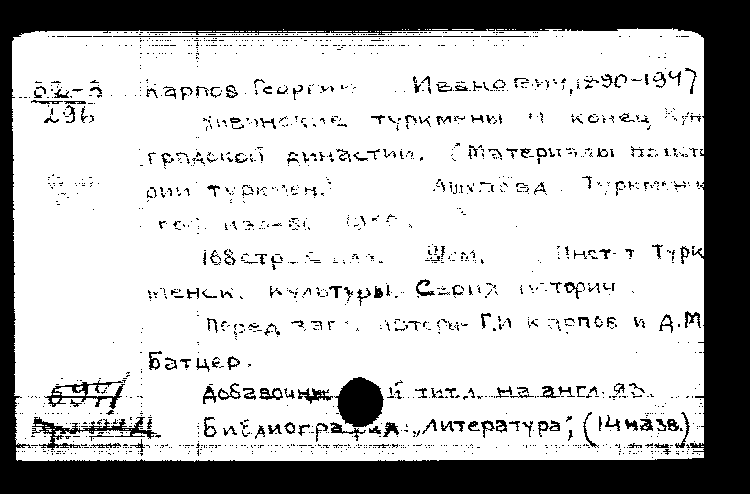 52-5 Карпов Георгий Иванович, 1890-1947
296 Хивинские туркмены и конец Кун-
градской династии. (Материалы по исто
рии туркмен.) Ашхабад Туркменск
гос. изд-во 19
168 стр. 
Шем. Инст-т Турк
менск. культуры. Серия историч.
Перед загл. авторы Г.И Карпов и Д.М.
Батцер.
Добавочный титл. на англ. яз.
Библиография: „Литература", (14 назв.)